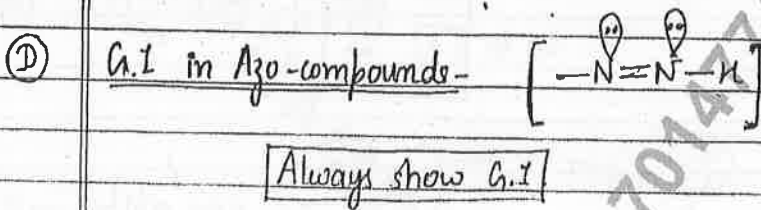 D G.I in Azo-compounds- [ -N̈=N̈-H ]
Always show G.I
701477